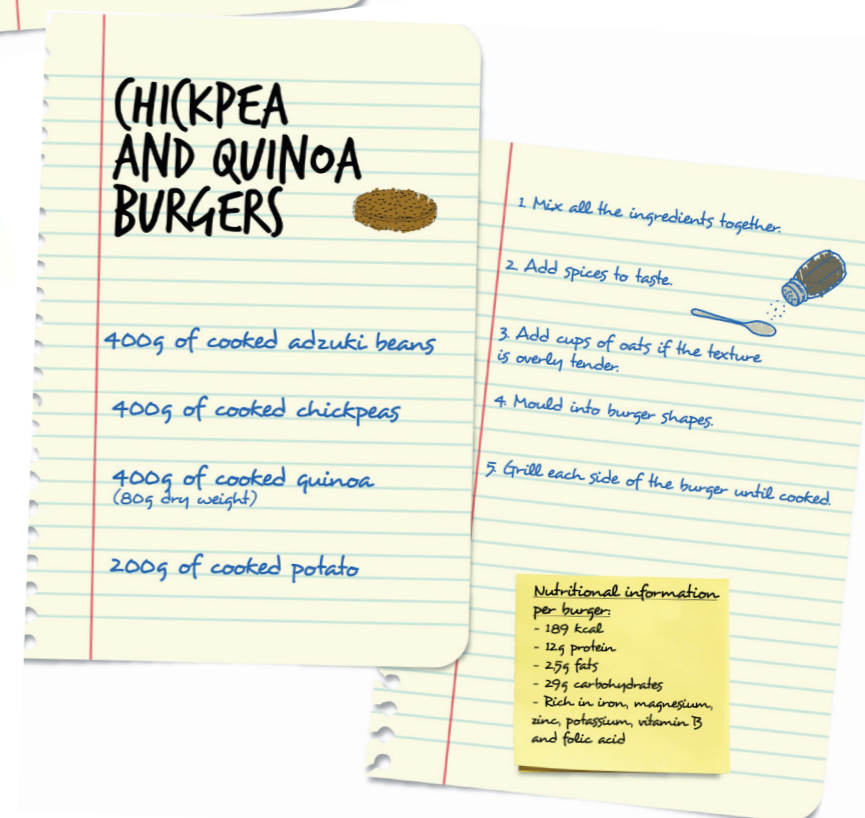 CHICKPEA
AND QUINOA
BURGERS
400g of cooked adzuki beans
400g of cooked chickpeas
400g of cooked quinoa
(80g dry weight)
200g of cooked potato
1. Mix all the ingredients together.
2. Add spices to taste.
3. Add cups of oats if the texture
is overly tender.
4. Mould into burger shapes.
5. Grill each side of the burger until cooked.
Nutritional information
per burger:
- 189 kcal
- 12g protein
- 2.5g fats
- 29g carbohydrates
- Rich in iron, magnesium,
zinc, potassium, vitamin B
and folic acid